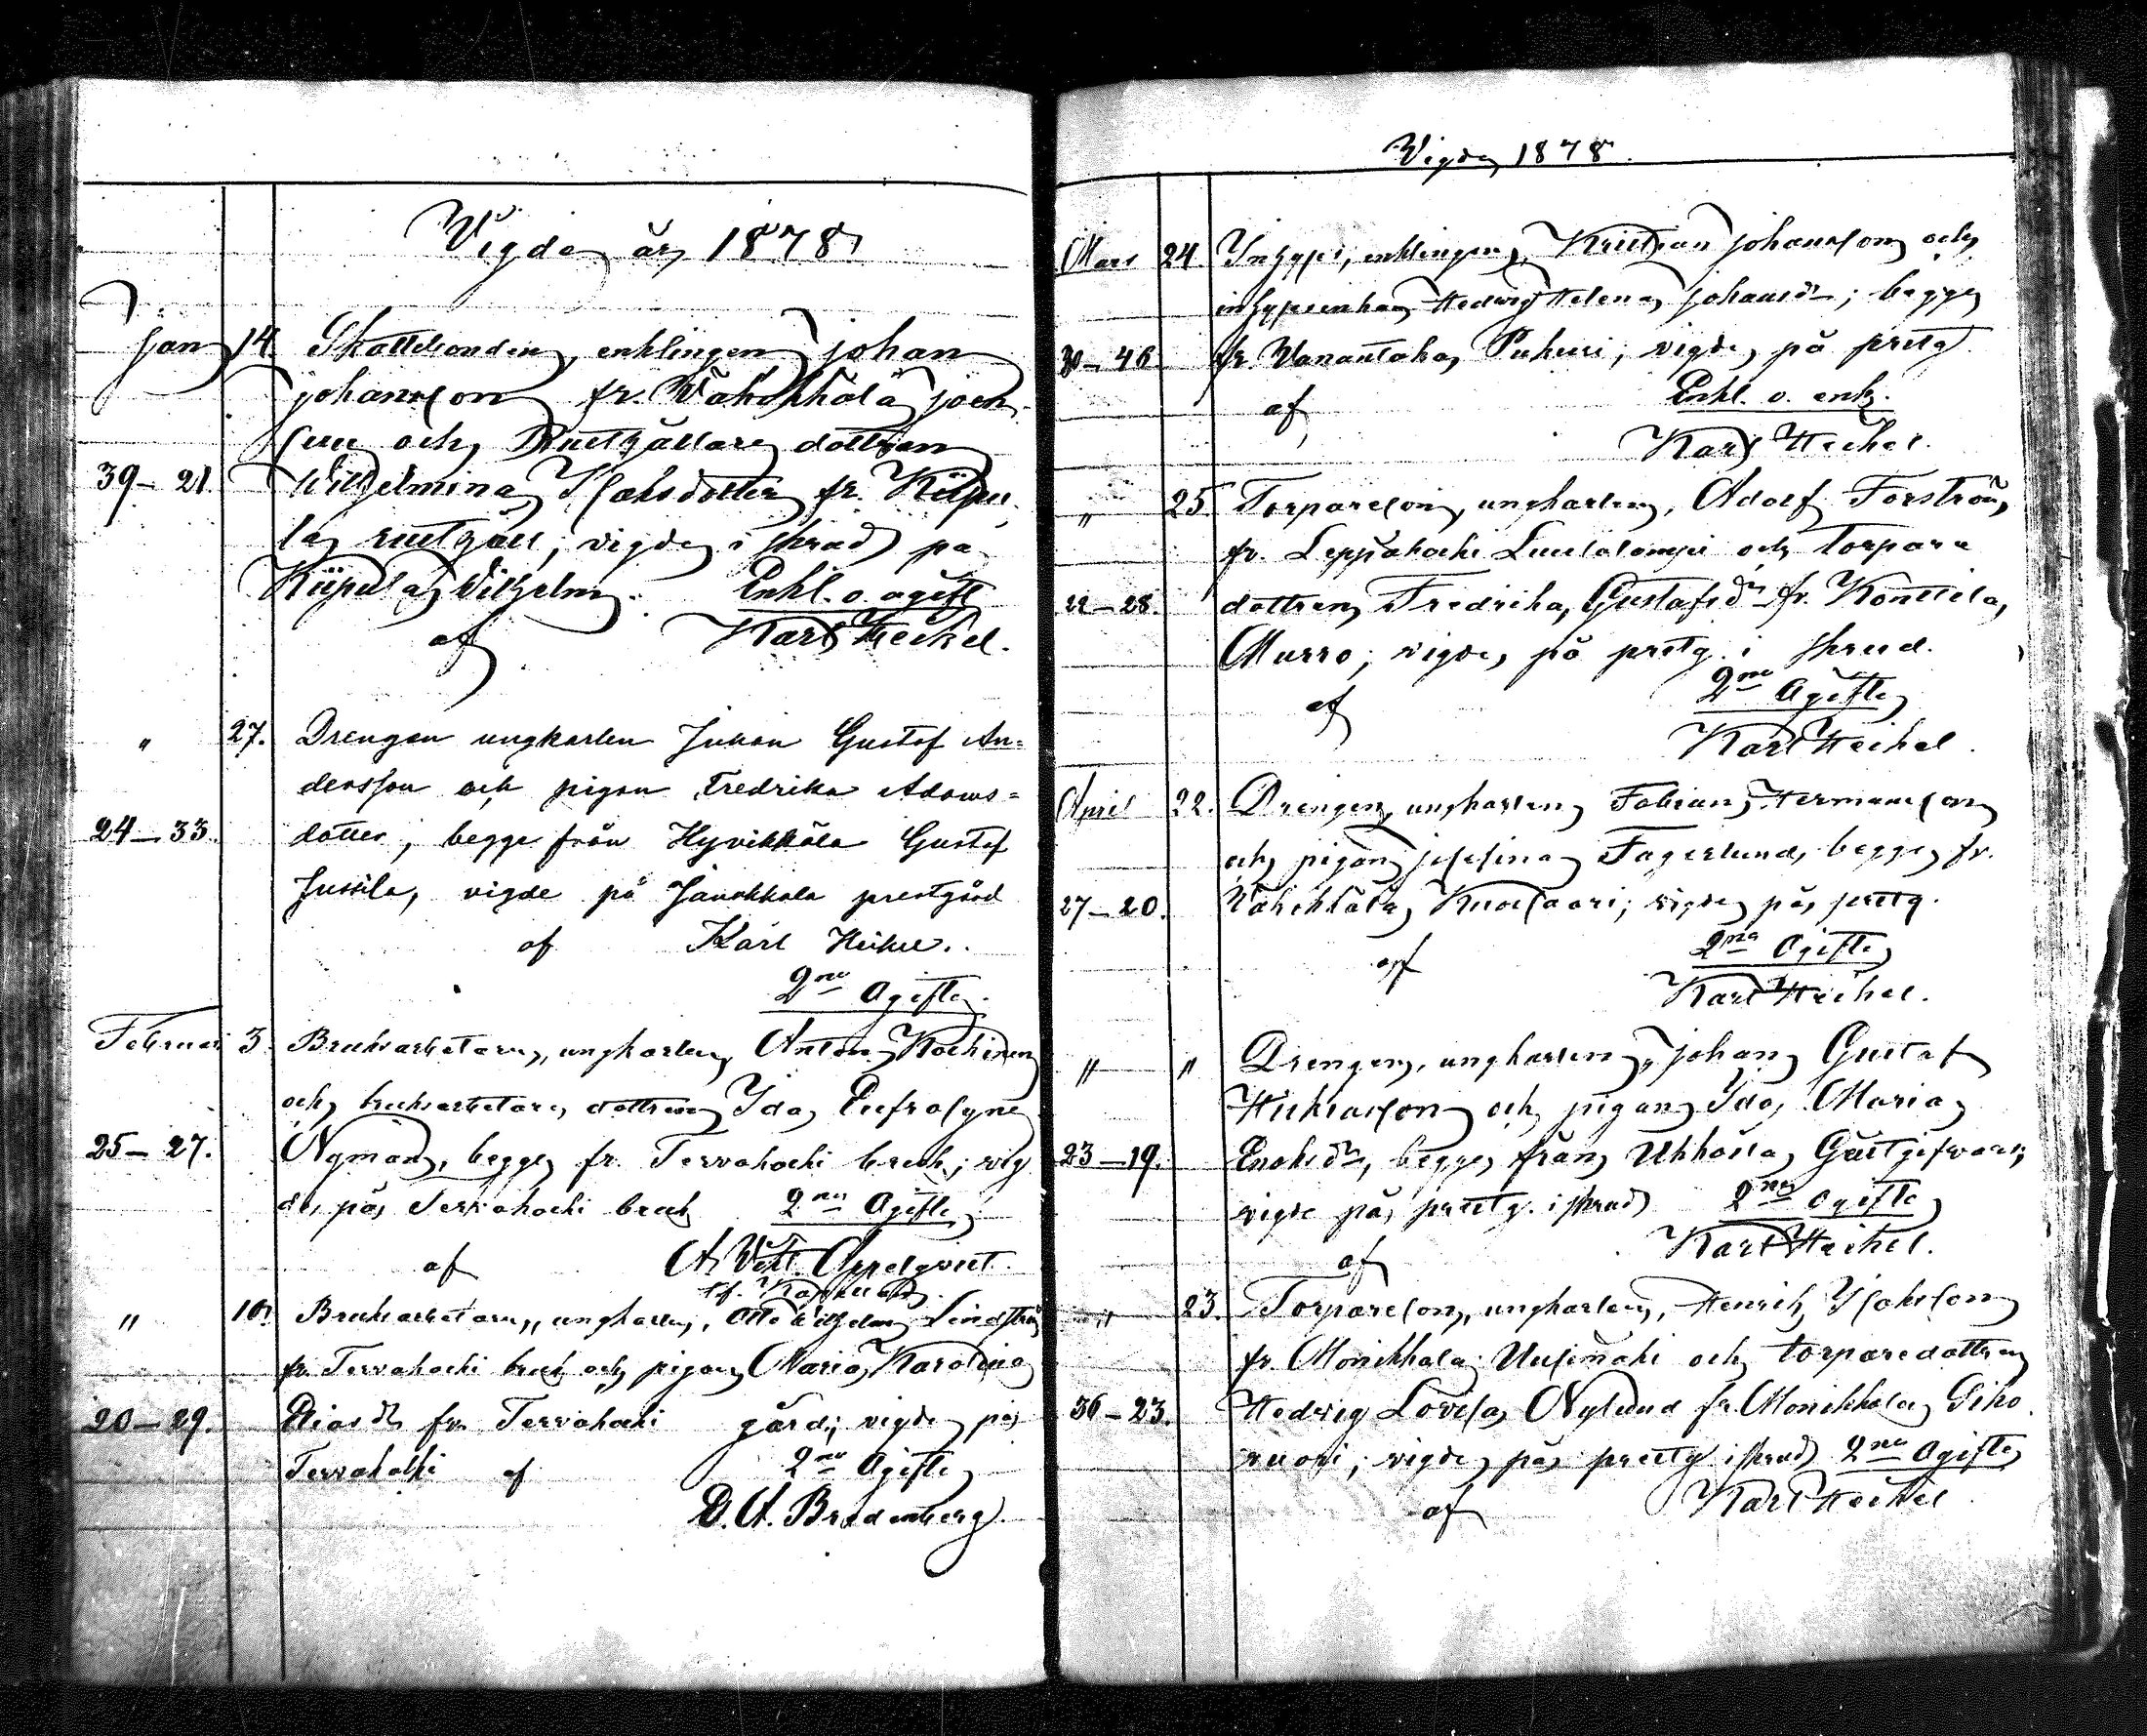 Vigda år 1878
Jan 14. Skattebonden, enklingen Johan
Johansson fr. Vähikkälä Joen
suu och Rusthållare dottren
39–21. Wilhelmina Isaksdotter fr. Kiipu
la rusthåll; vigda i skrud på
Kiipula Vilhelm. Enkl. o. ogift
af Karl Heikel.
" 27. Drengen ungkarlen Johan Gustaf An=
dersson och pigan Fredrika Adams=
24–33. dotter, begge från Hyvikkälä Gustaf
Jussila, vigde på Janakkala prestgård
af Karl Heikel.
2ne Ogifte.
Februari 3. Bruksarbetaren, ungkarlen, Anton Kochinen
och bruksarbetare dottren Ida Eufrosyne
25–27. Nyman, begge fr. Tervakoski bruk; vig
de på Tervakoski bruk 2ne Ogifte
af A. Vikt. Appelqvist.
tf. Kapellan
" 10. Bruksarbetaren, ungkarlen, Otto Vilhelm Lindström
fr. Tervakoski bruk och pigan Maria Karolina
20–29. Eliasdr fr. Tervakoski gård; vigde på
Tervakoski af 2ne Ogifte
D. A. Brandenberg.
Vigde 1878.
Mars 24. Inhyses, enklingen, Kristian Johansson och
inhysesenkan Hedvig Helena Johansdr; begge
30–46. fr. Vanantaka Puhuri; vigde på prestg.
af Enkl. o. enk.
Karl Heikel.
" 25. Torpareson, ungkarlen, Adolf Forström,
fr. Leppäkoski Luulalampi och torpare
22–28. dottren Fredrika Gustafsdr fr. Konttila
Murro; vigde på prestg. i skrud.
af 2ne Ogifte
Karl Heikel.
April 22. Drengen, ungkarlen Fabian Hermansson
och pigan Josefina Fagerlund, begge fr.
27–20. Vähikkälä Kuosaari; vigde på prestg.
af 2ne Ogifte
Karl Heikel.
" " Drengen, ungkarlen, Johan Gustaf
Henriksson och pigan Ida Maria
23–19. Enoksdr, begge från Uhkoila Gästgifvars;
vigde på prestg. i skrud 2ne ogifte
af Karl Heikel.
" 23. Torpareson, ungkarlen, Henrik Isaksson
fr. Monikkala Uusimäki och torparedottren
36–23. Hedvig Lovisa Nylund fr. Monikkala Siko
vuori; vigde på prestg i skrud 2ne Ogifte
af Karl Heikel